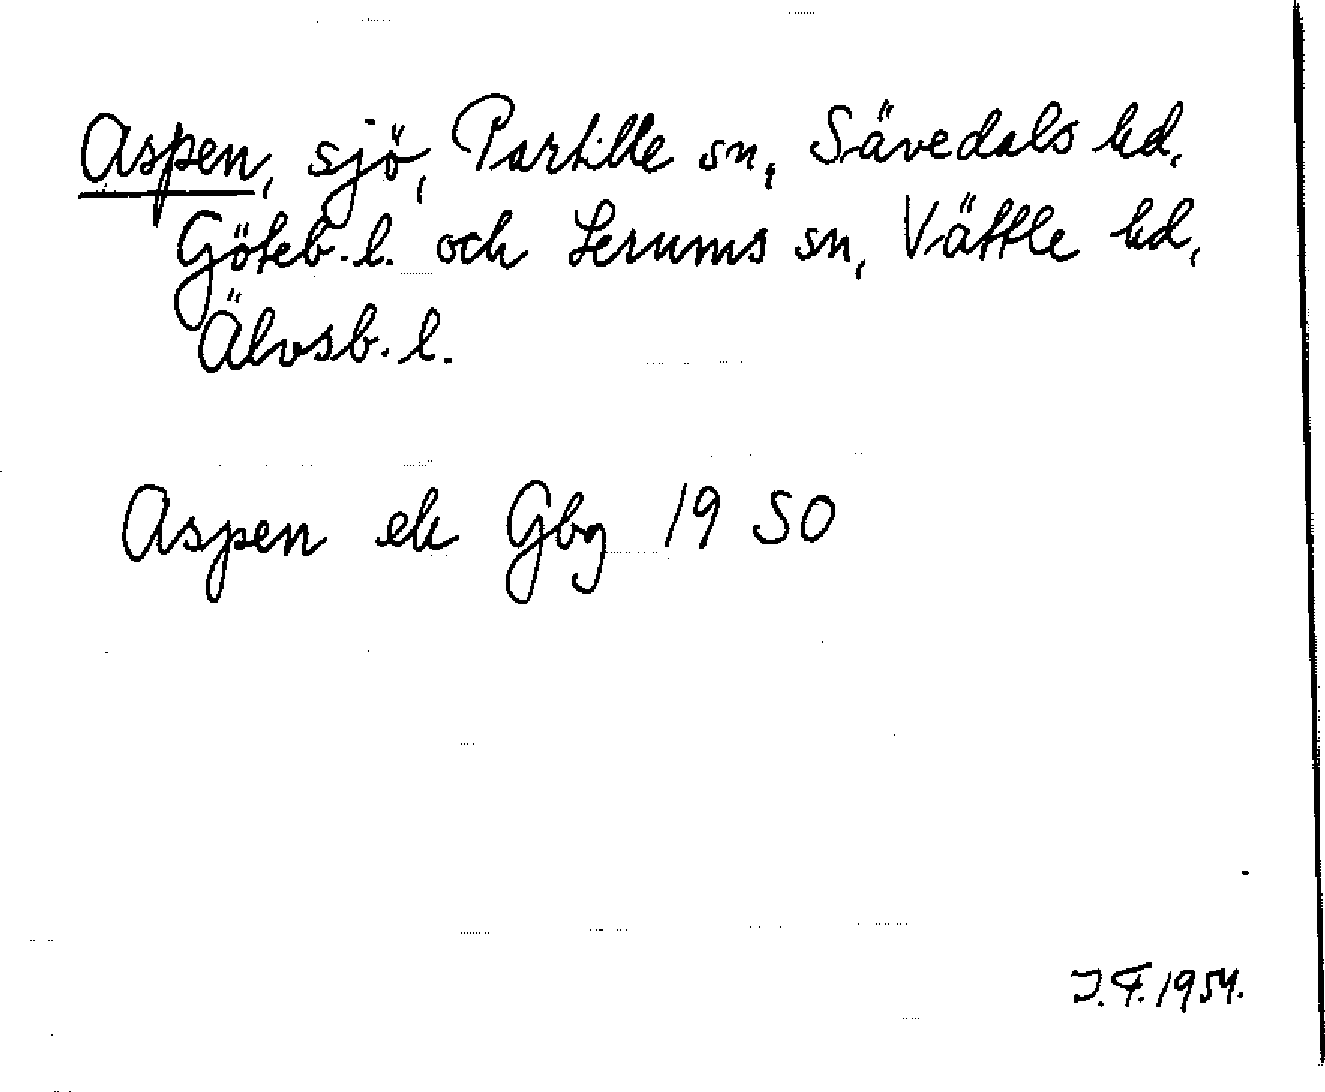 Aspen, sjö, Partille sn, Sävedals hd,
Göteb. l. och Lerums sn, Vättle hd,
Älvsb. l.
Aspen ek Gbg 1950
J.F. 1954.